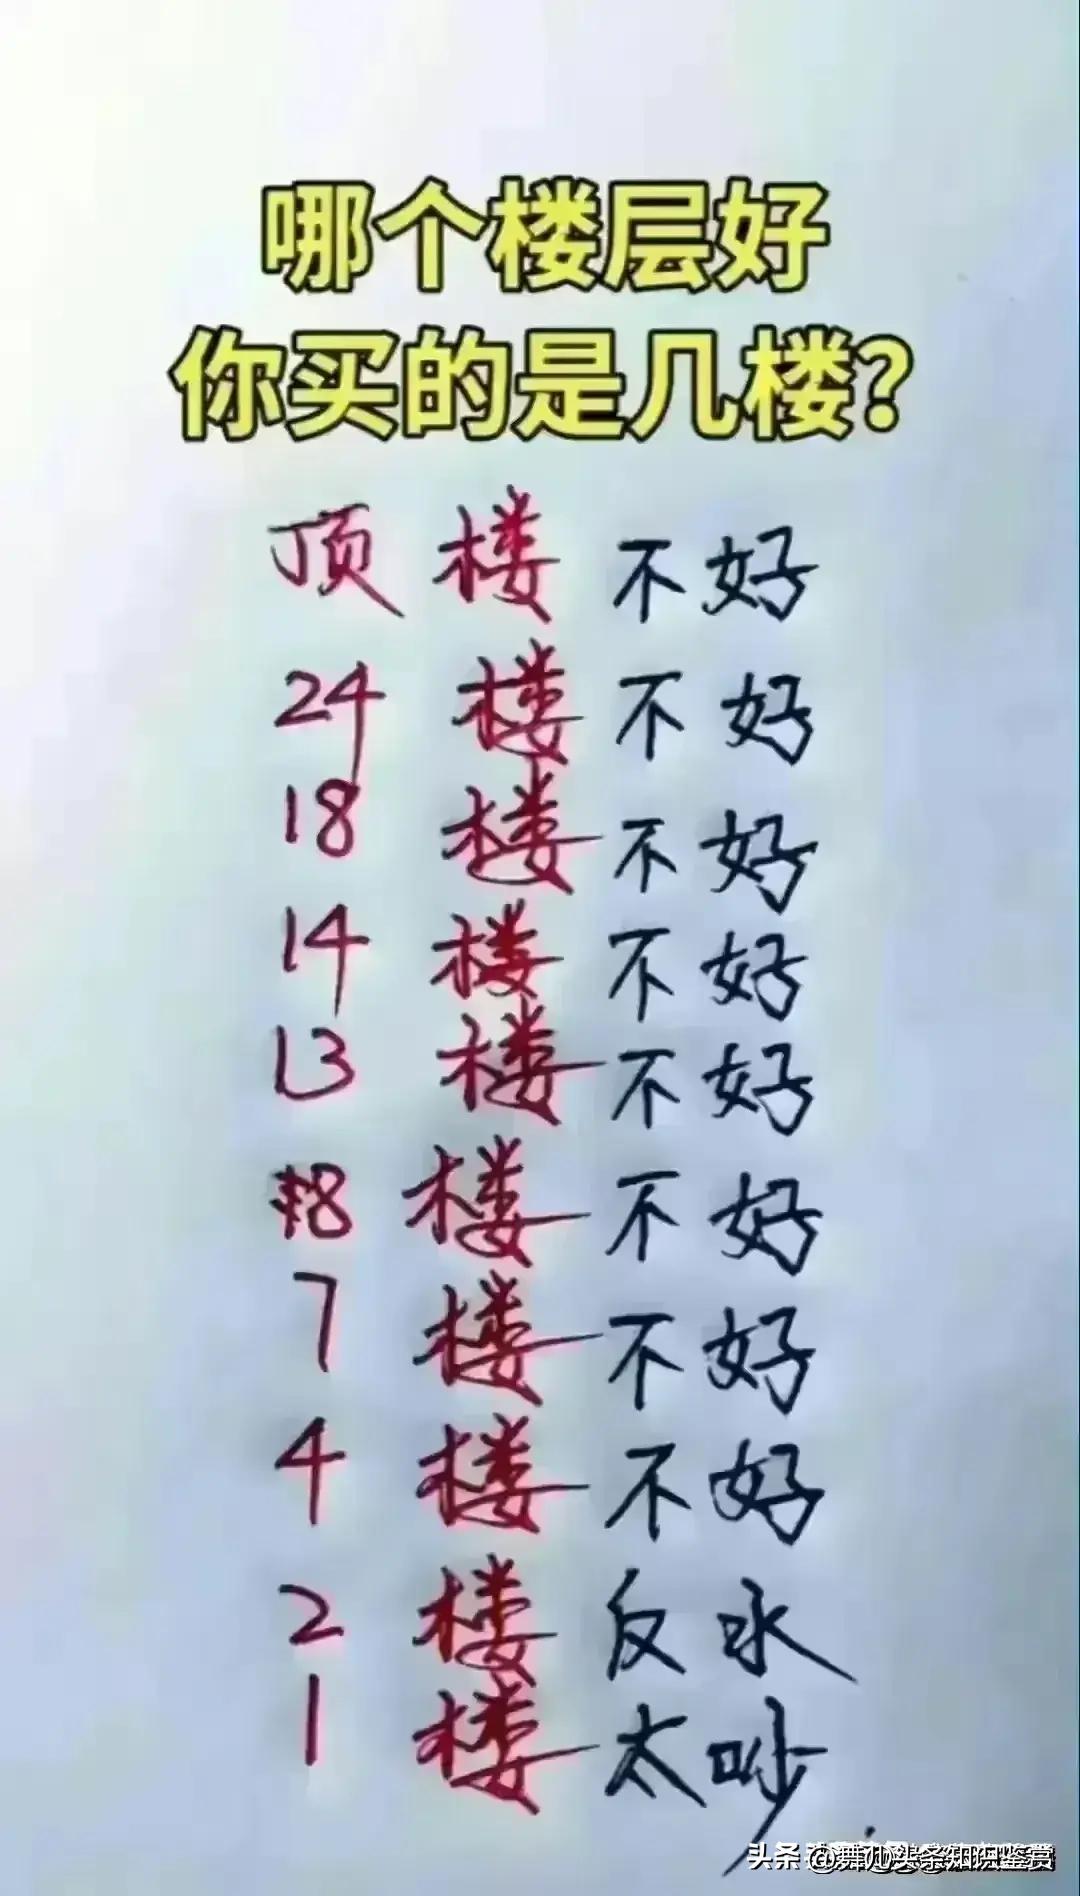 哪个楼层好
你买的是几楼?
顶楼不好
24楼不好
18楼不好
14楼不好
13楼不好
8楼不好
7楼不好
4楼不好
2楼反水
1楼太吵
头条 @舞
头条知识鉴赏